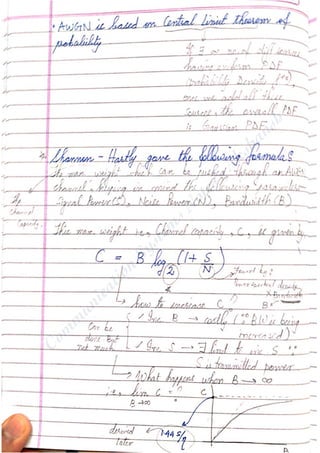 • AWGN is based on Central limit theorem of
probability
If ∃ a no. of diff sources
having uniform PDF
(Probability Density fⁿ),
once we add all these
sources, the overall PDF
is Gaussian PDF.
Shannon - Hartly gave the following formula:
The max weight which can be pushed through an AWGN
channel, keeping in mind the following parameters
Signal Power(S), Noise Power(N), Bandwidth(B)
Channel
Capacity
This max weight i.e., Channel capacity, C, is given by
C = B log₂ (1 + S/N)
Power spectral density
x Bandwidth
how to increase C
Inc B → costly (∵ BW is being
increased)
Can be
done but
not much
Inc S → ∃ limit to inc S ∵
S is transmitted power
What happens when B → ∞
i.e., lim C = ?
B→∞
C
derived
later
1.44 S/η
B